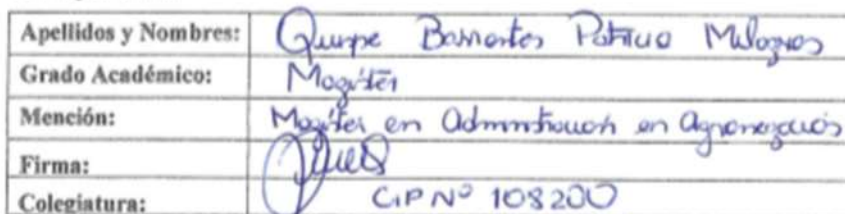 Apellidos y Nombres: Quispe Barrantes Patricia Milagros
Grado Académico: Magíster
Mención: Magíster en Administración en Agronegocios
Firma:
Colegiatura: CIP Nº 108200